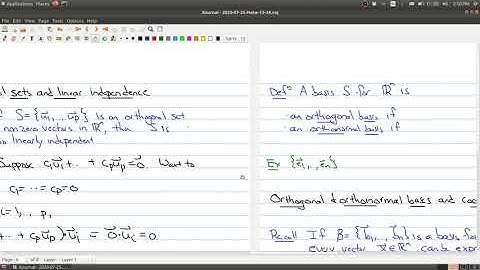 Applications Places
2:50PM
Xournal - 2020-07-25-Note-13-34.xoj
File Edit View Page Tools Options Help
sets and linear independence
S = {u⃗1, ... u⃗p} is an orthogonal set
nonzero vectors in ℝⁿ, then S is
linearly independent
Suppose c1u⃗1 + ... + cpu⃗p = 0⃗. Want to
c1 = ... = cp = 0
i = 1, ... p,
+ ... + cpu⃗p)·u⃗i = 0⃗·u⃗i = 0
Defⁿ A basis S for ℝⁿ is
· an orthogonal basis if
· an orthonormal basis if
Ex {e⃗1, ... e⃗n}
Orthogonal & orthonormal bases and coo
Recall If B = {b⃗1, ... b⃗n} is a basis for
every vector x⃗∈ℝⁿ can be expre